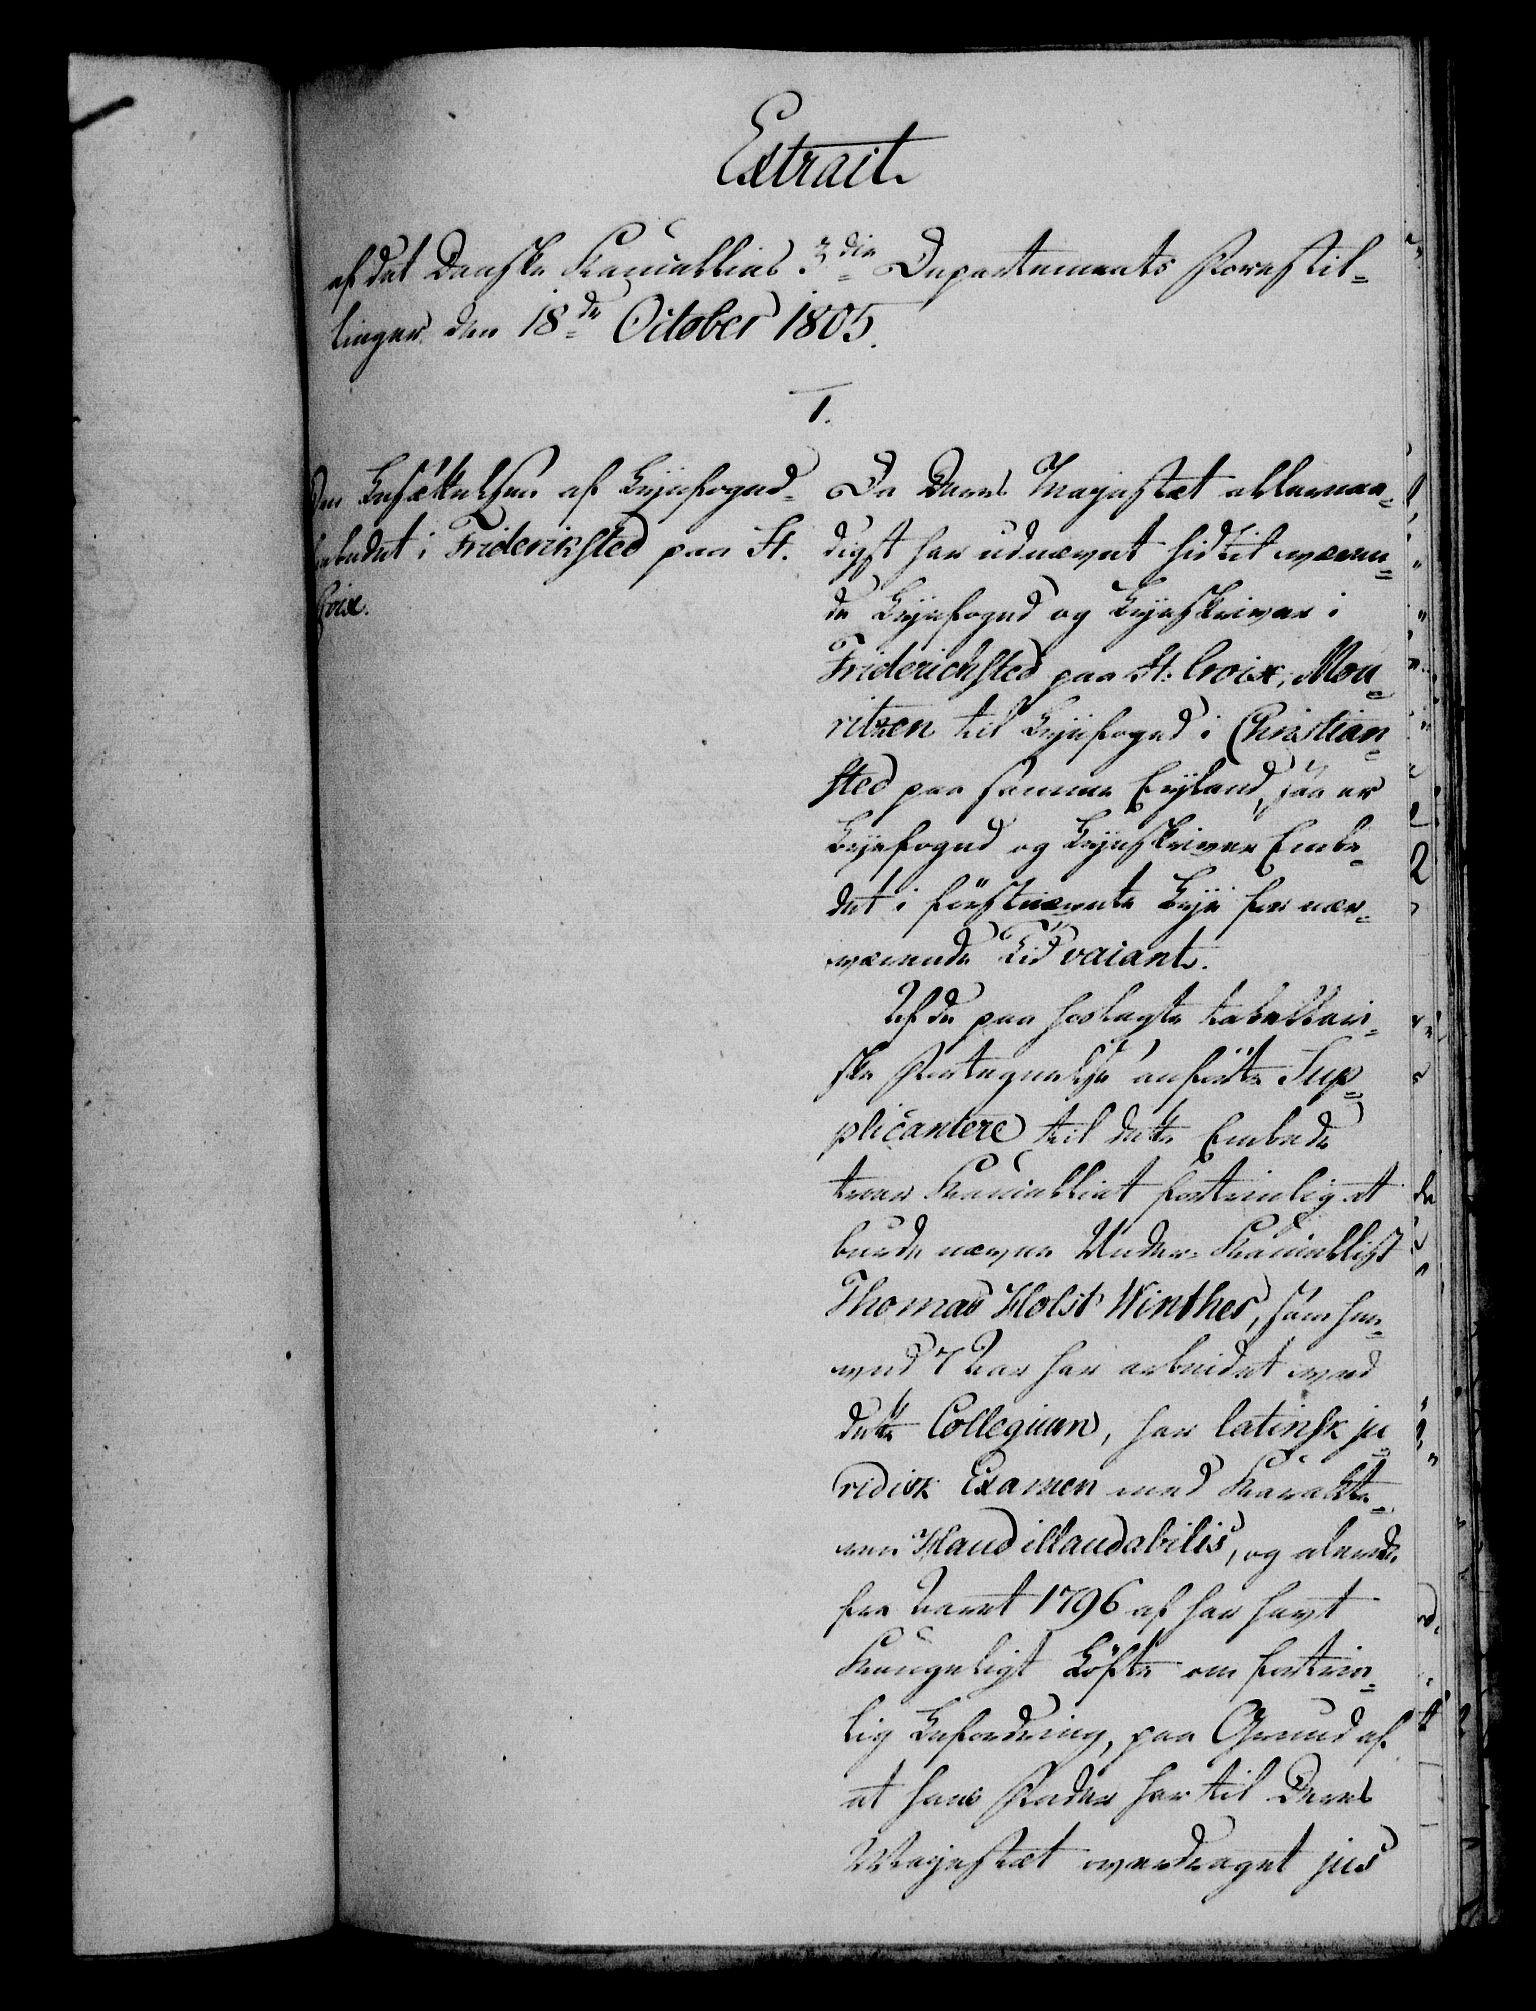 Extrait
af det Danske Kancellies 3die Departements Forestil-
linger den 18de October 1805.
1.
Om Besættelsen af Byefoged-
embedet i FriderikSted paa St.
Croix.
Da Deres Majestæt allernaa-
digst har udnævnt hidtil væren-
de Byefoged og Byeskriver i
Friderichsted paa St. Croix, Mou-
ritzen til Byefoged i Christian-
sted paa samme Eyland, saa er
Byefoged og Byeskriver Embe-
det i förstnævnte Bye for nær-
værende Tid vacant.
Af de paa hoslagte tabellari-
ske Fortegnelse anförte Sup-
plicantere til dette Embede
troer Kancelliet fortrinlig at
burde nævne Under-Kancellist
Thomas Holst Winther, som hen-
ved 7 Aar har arbeidet ved
dette Collegium, har latinsk ju-
ridisk Examen med Karakte-
ren Haud illaudabilis, og alerede
fra Aaret 1796 af har havt
Kongeligt Löfte om fortrin-
lig Befordring, paa Grund af
at hans Fader har til Deres
Majestæt overdraget jus